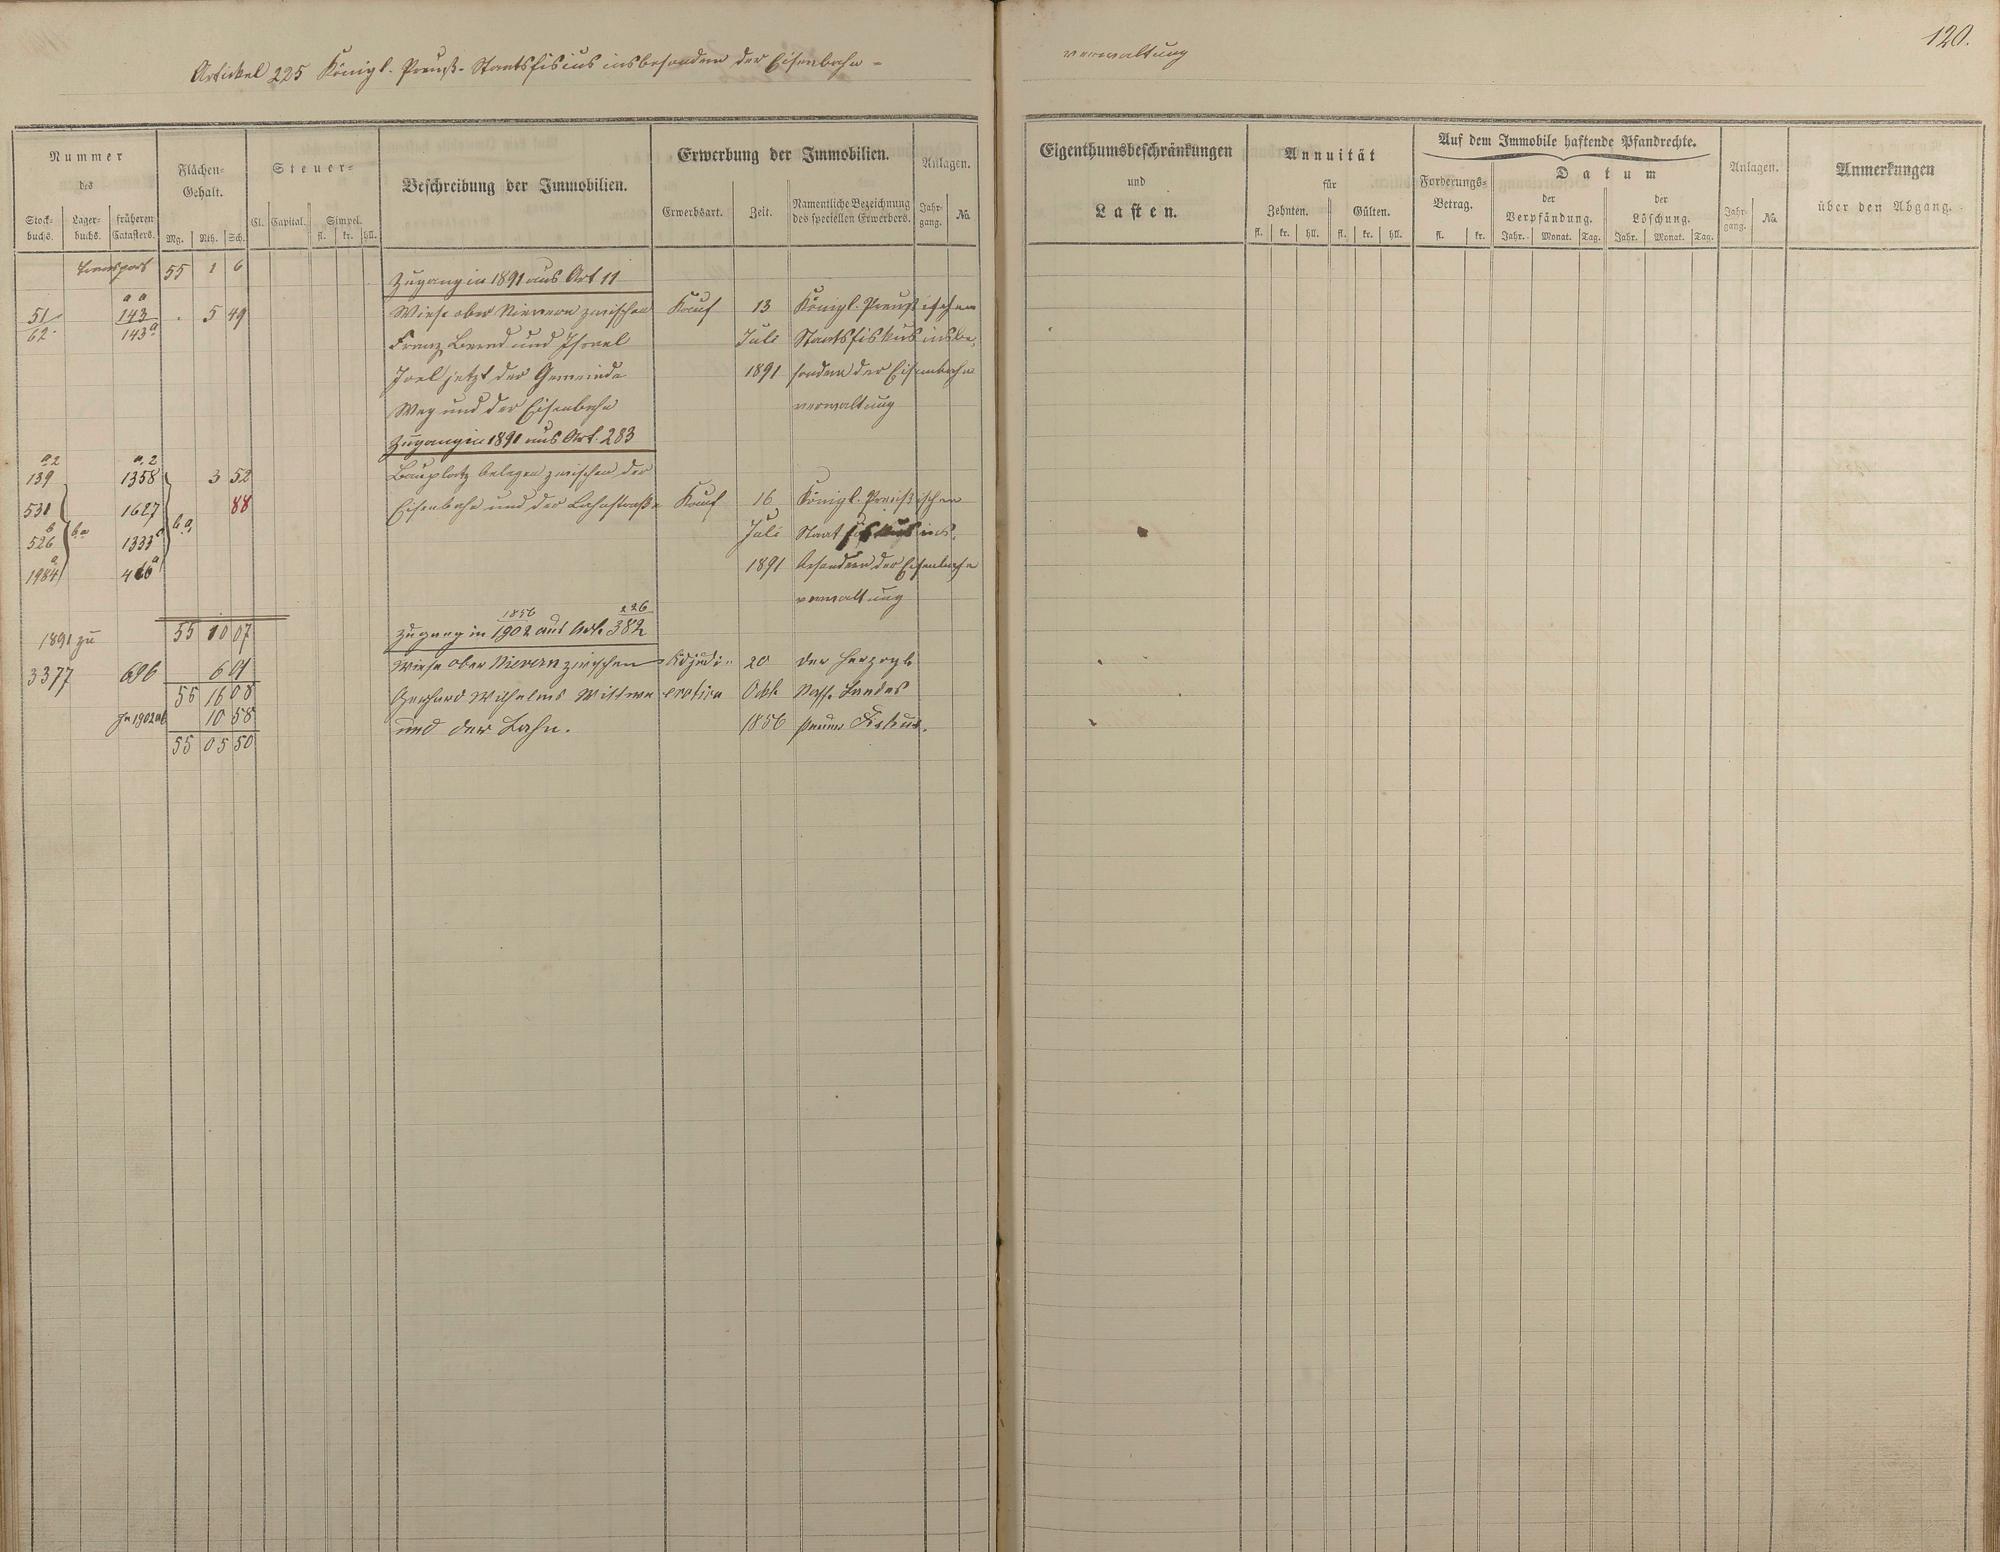 120.
Artickel 225 Königl. Preuß. Staatsfisius insbesondere der Eisenbahn-
verwaltung
Nummer
des
Stock-
buchs.
Lager-
buchs.
früheren
Catasters.
Flächen-
Gehalt.
Mg. Rth. Sch.
Steuer-
Cl. Capital. Simpel.
fl. kr. hll.
Beschreibung der Immobilien.
Erwerbung der Immobilien.
Erwerbsart. Zeit. Namentliche Bezeichnung
des speciellen Erwerbers.
Anlagen.
Jahr-
gang. No.
Eigenthumsbeschränkungen
und
Lasten.
Annuität
für
Zehnten. Gülten.
fl. kr. hll. fl. kr. hll.
Auf dem Immobile haftende Pfandrechte.
Forderungs-
Betrag.
fl. kr.
Datum
der
Verpfändung.
Jahr. Monat. Tag.
der
Löschung.
Jahr. Monat. Tag.
Anlagen.
Jahr-
gang. No.
Anmerkungen
über den Abgang.
Transport 55 1 6
Zugang in 1891 aus Art 11
a a
51 143 . 5 49 Wiese ober Nievern zwischen Kauf 13 Königl. Preußischen
62. 143a Franz Bernd und Israel Juli Staatsfiskus insbe-
Joel jetzt der Gemeinde 1891 sondere der Eisenbahn
Weg und der Eisenbahn verwaltung
Zugang in 1891 aus Art. 283
a2 a,2
139 1358 3 52 Bauplatz belegen zwischen der
531 1627 88 Eisenbahn und der Lahnstraße Kauf 16 Königl. Preußischen
b
526 1333a Juli Staatsfiskus ins-
a
1984 1891 besondere der Eisenbahn
verwaltung
1856 226
1891 zu 55 10 07 Zugang in 1902 aus Art. 382
3377 696 6 01 Wiese ober Nievern zwischen Adjudi- 20 der Herzogl
55 16 08 Gerhard Wilhelms Wittwe cation Octb. Nass. Landes
In 1902 ab 10 58 und der Lahn. 1856 steuer Fiskus.
55 05 50